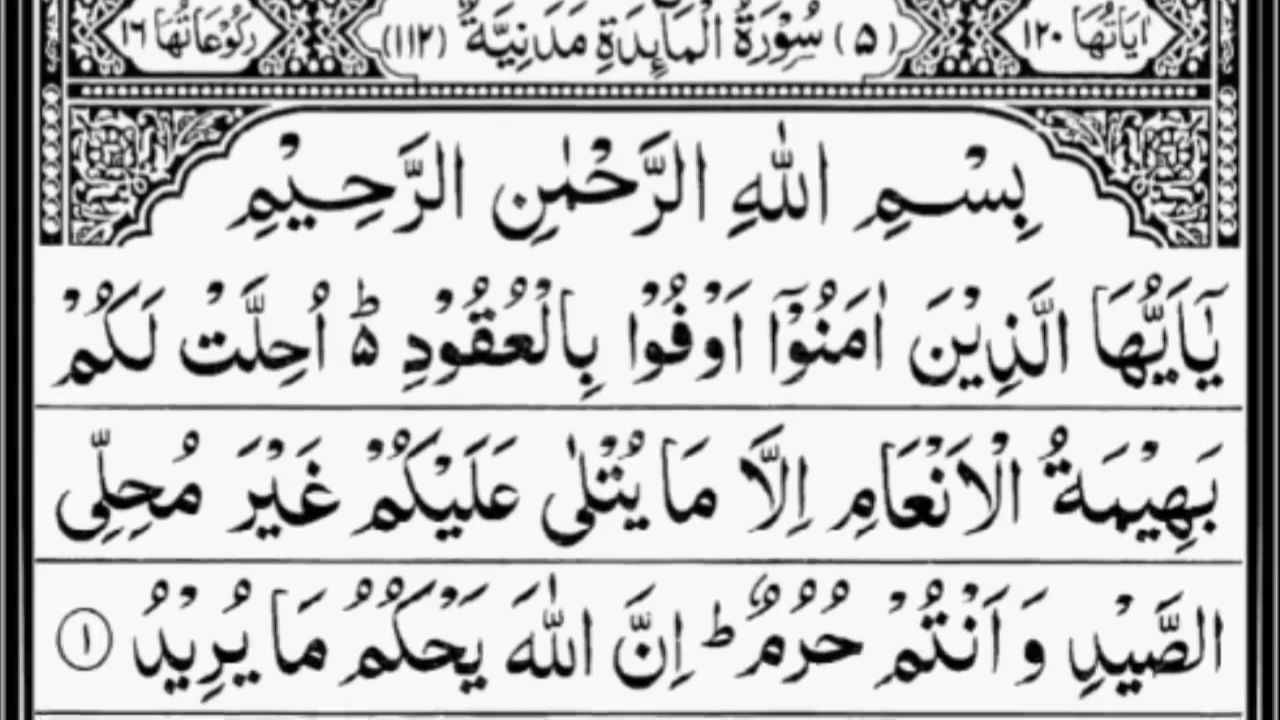 اٰيَاتُهَا ١٢٠ (٥) سُوْرَةُ الْمَآئِدَةِ مَدَنِيَّةٌ (١١٢) رُكُوْعَاتُهَا ١٦
بِسْمِ اللّٰهِ الرَّحْمٰنِ الرَّحِيْمِ
يٰۤاَيُّهَا الَّذِيْنَ اٰمَنُوْۤا اَوْفُوْا بِالْعُقُوْدِ ؕ۵ اُحِلَّتْ لَكُمْ
بَهِيْمَةُ الْاَنْعَامِ اِلَّا مَا يُتْلٰى عَلَيْكُمْ غَيْرَ مُحِلِّى
الصَّيْدِ وَ اَنْتُمْ حُرُمٌ ؕ اِنَّ اللّٰهَ يَحْكُمُ مَا يُرِيْدُ ١